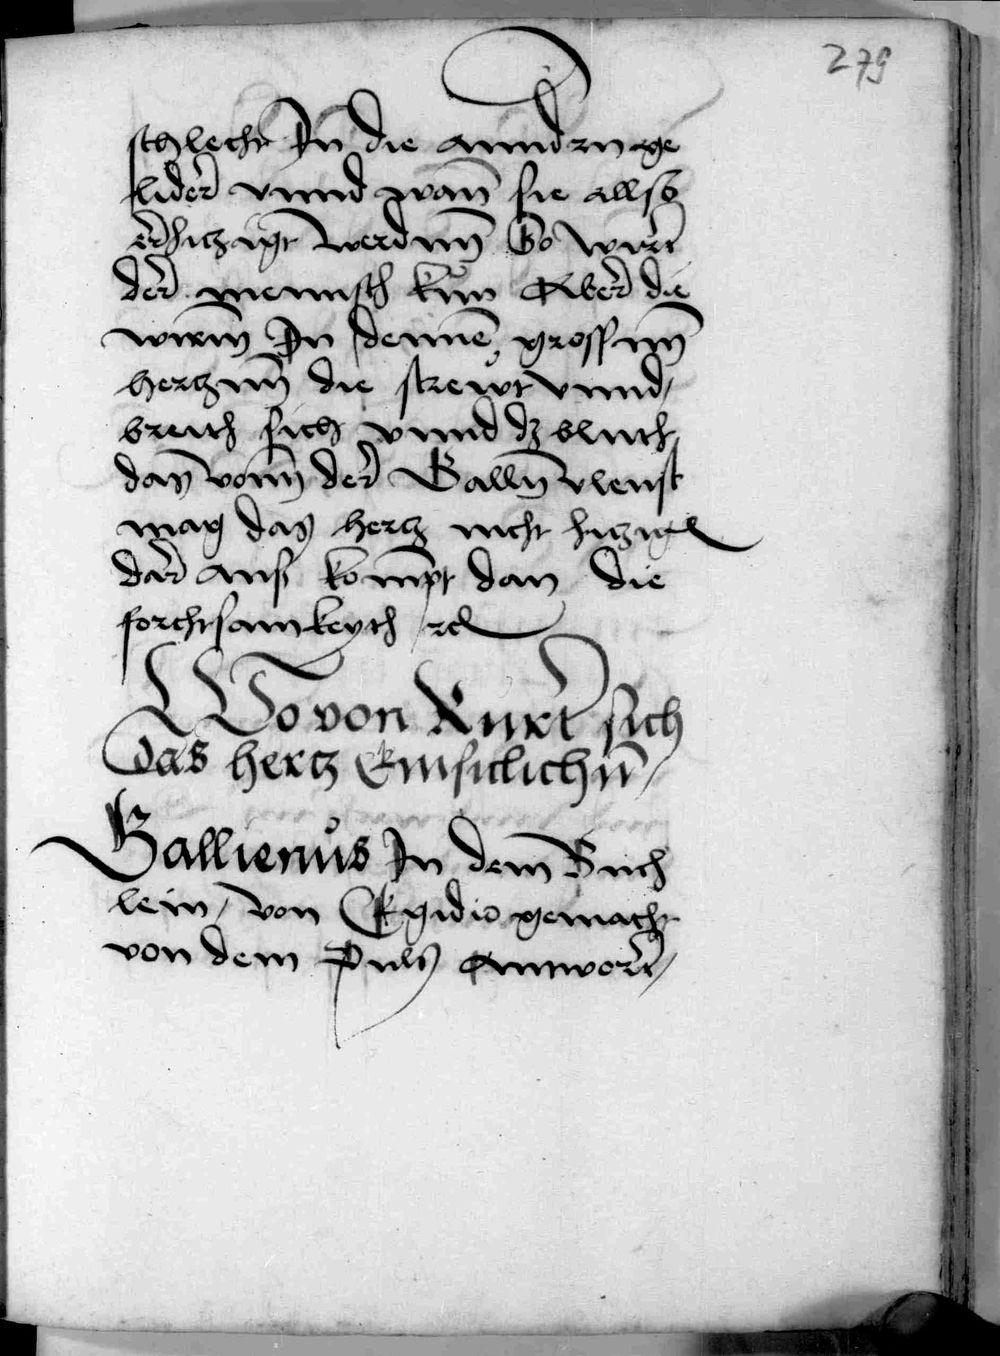 279
schlecht In die anndrn ge
lider vnnd wan̄ sie allso
erhitzigt werdnn̄ So wirt
der mennsch kün Aber die
wirm̄ In dennē grossnn̄
hertznn̄ die strewt vnnd
breith sich vnnd dz bluth
das vonn̄ der Gallñ vleust
mag das hertz nicht hitzigē
dar auß kompt dan die
forchtsamkeyth rc
Wo von Rurt sich
das hertz Emsiclichn̄
Gallienůs In dem Buch
lein von Egidio gemacht
von dem Puls Antwort